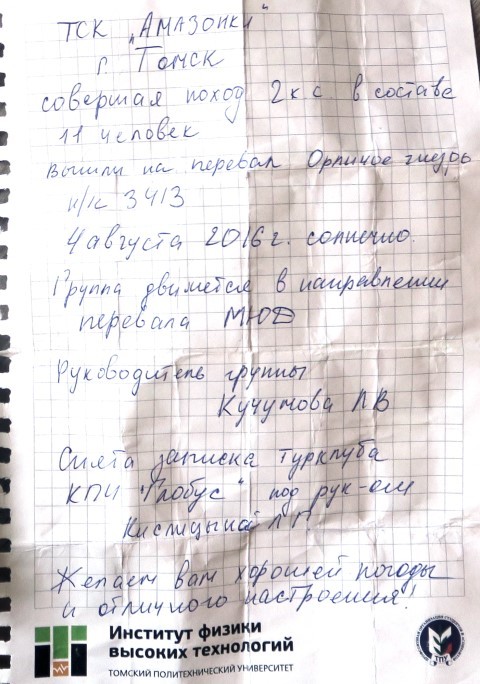 ТСК „Амазонки"
г. Томск
совершая поход 2 к с в составе
11 человек
вышли на перевал Орлиное гнездо
н/к 3413
4 августа 2016 г. солнечно.
Группа движется в направлении
перевала МЮД
Руководитель группы
Кучумова ЛВ
Снята записка турклуба
КПИ "Глобус" под рук-ом
Кислицыной Л Г.
Желаем вам хорошей погоды
и отличного настроения!
Институт физики
высоких технологий
ТОМСКИЙ ПОЛИТЕХНИЧЕСКИЙ УНИВЕРСИТЕТ
ТПУ